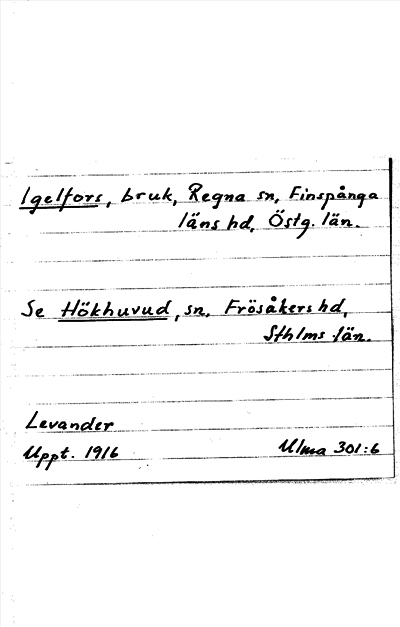 Igelfors, bruk, Regna sn, Finspånga
läns hd, Östg. län.
Se Hökhuvud, sn, Frösåkers hd,
Sthlms län.
Levander
Uppt. 1916 Ulma 301:6